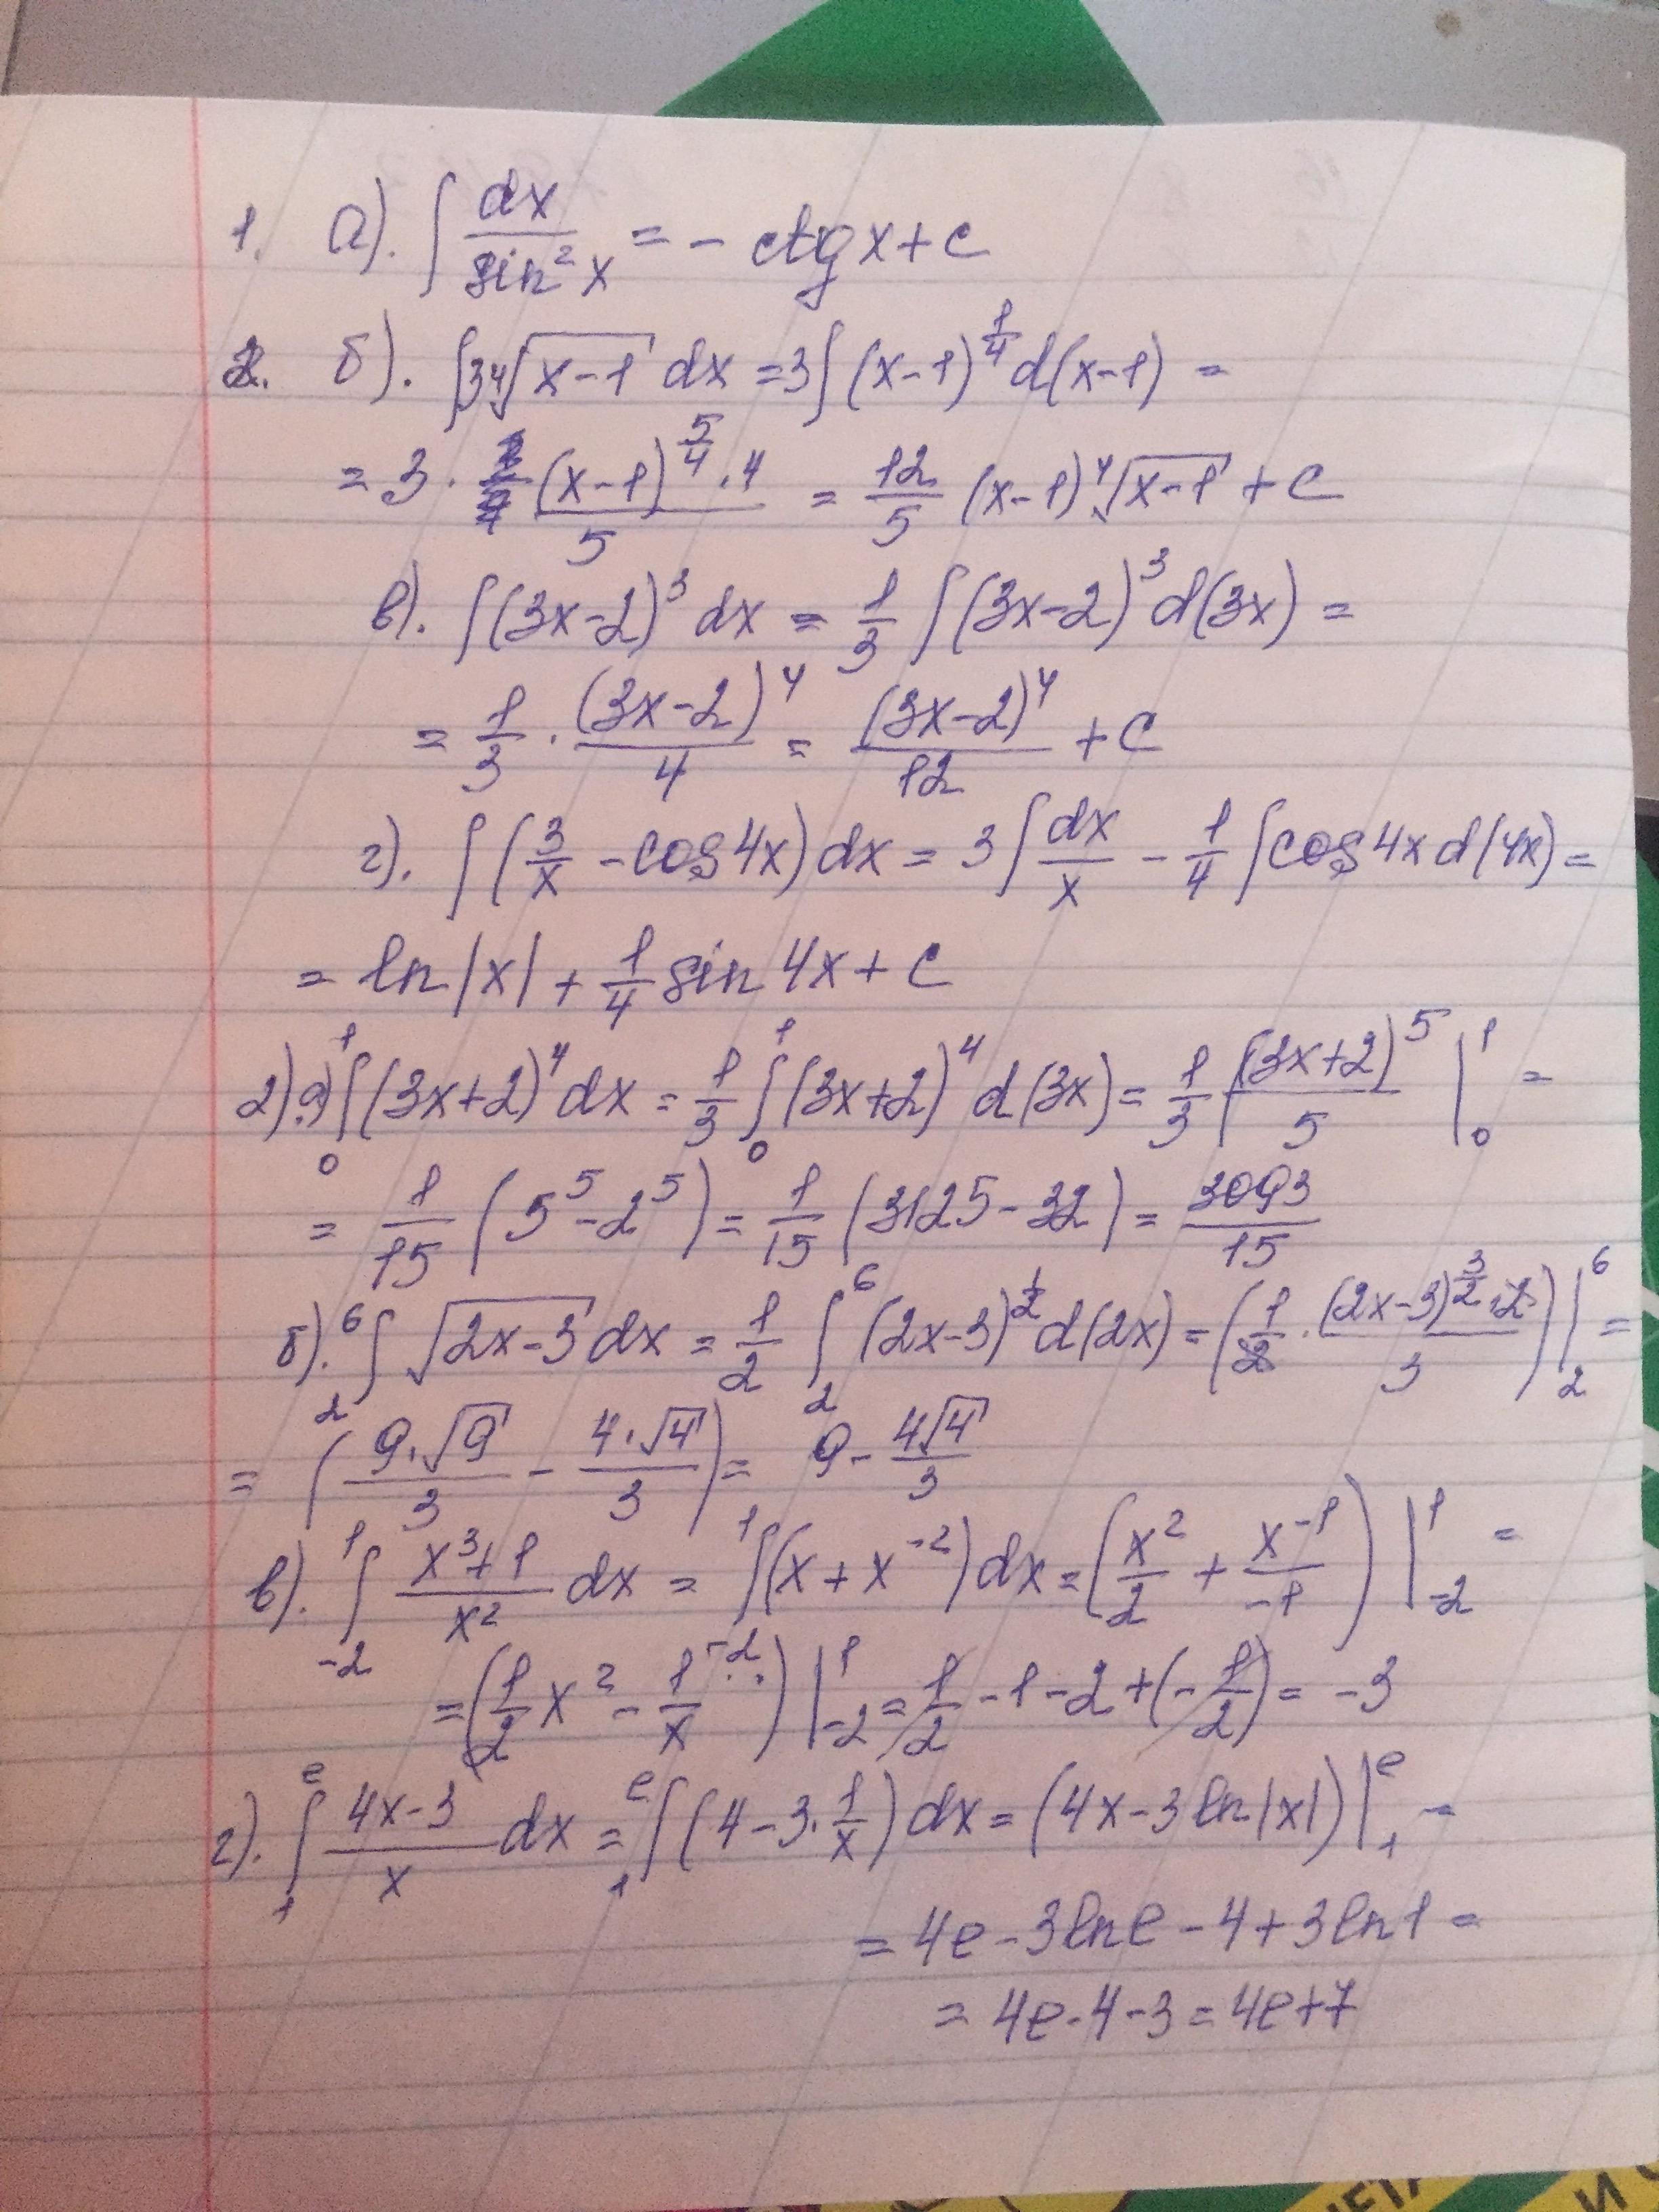 1. а). ∫ dx/sin²x = - ctgx + c
2. б). ∫3⁴√(x-1) dx = 3∫(x-1)^(1/4) d(x-1) =
= 3 · (x-1)^(5/4) · 4 / 5 = 12/5 (x-1) ⁴√(x-1) + c
в). ∫(3x-2)³ dx = 1/3 ∫(3x-2)³ d(3x) =
= 1/3 · (3x-2)⁴/4 = (3x-2)⁴/12 + c
г). ∫(3/x - cos4x) dx = 3∫dx/x - 1/4 ∫cos4x d(4x) =
= ln|x| + 1/4 sin4x + c
2). а) ∫₀¹(3x+2)⁴ dx = 1/3 ∫₀¹(3x+2)⁴ d(3x) = 1/3 (3x+2)⁵/5 |₀¹ =
= 1/15 (5⁵ - 2⁵) = 1/15 (3125 - 32) = 3093/15
б). ∫₂⁶ √(2x-3) dx = 1/2 ∫₂⁶ (2x-3)^(1/2) d(2x) = (1/2 · (2x-3)^(3/2) · 2 / 3) |₂⁶ =
= (9·√9/3 - 4·√4/3) = 9 - 4√4/3
в). ∫₋₂¹ (x³+1)/x² dx = ∫¹(x + x⁻²) dx = (x²/2 + x⁻¹/-1) |₋₂¹ =
= (1/2 x² - 1/x) |₋₂¹ = 1/2 - 1 - 2 + (-1/2) = -3
г). ∫₁ᵉ (4x-3)/x dx = ∫₁ᵉ (4 - 3·1/x) dx = (4x - 3ln|x|) |₁ᵉ =
= 4e - 3lne - 4 + 3ln1 =
= 4e - 4 - 3 = 4e + 7